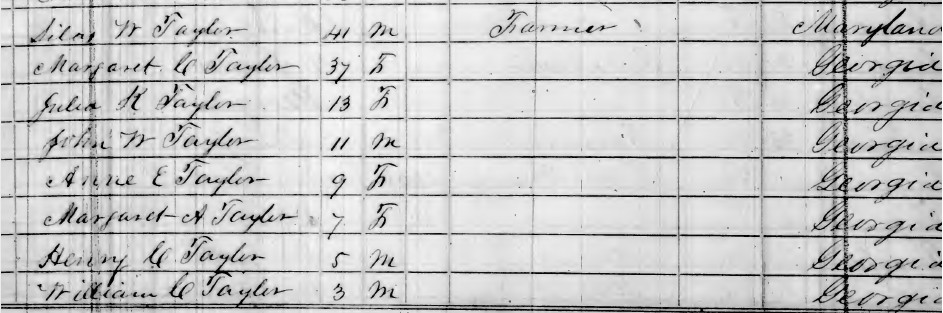 Silas W Taylor 41 M Farmer Maryland
Margaret C Taylor 37 F Georgia
Julia K Taylor 13 F Georgia
John W Taylor 11 M Georgia
Anne E Taylor 9 F Georgia
Margaret A Taylor 7 F Georgia
Henry C Taylor 5 M Georgia
William C Taylor 3 M Georgia